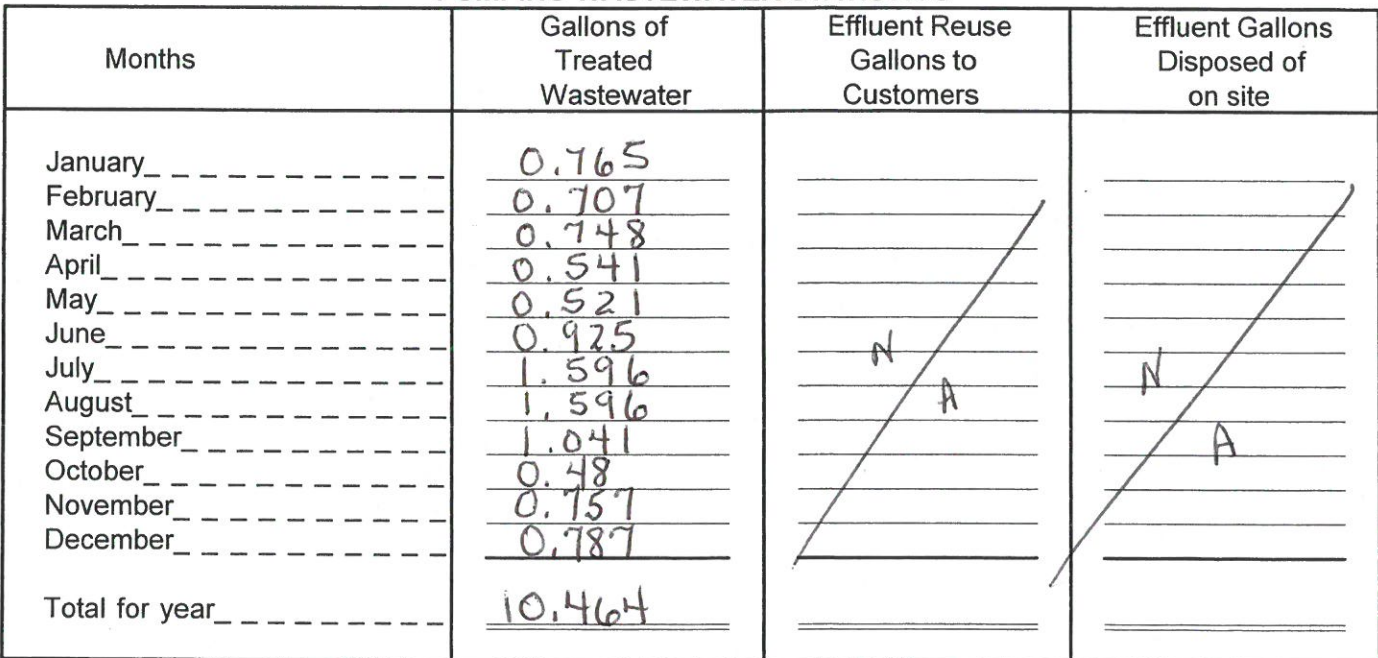 Months
Gallons of
Treated
Wastewater
Effluent Reuse
Gallons to
Customers
Effluent Gallons
Disposed of
on site
January 0.765
February 0.707
March 0.748
April 0.541
May 0.521
June 0.925
July 1.596
August 1.596
September 1.041
October 0.48
November 0.757
December 0.787
N A
N A
Total for year 10.464